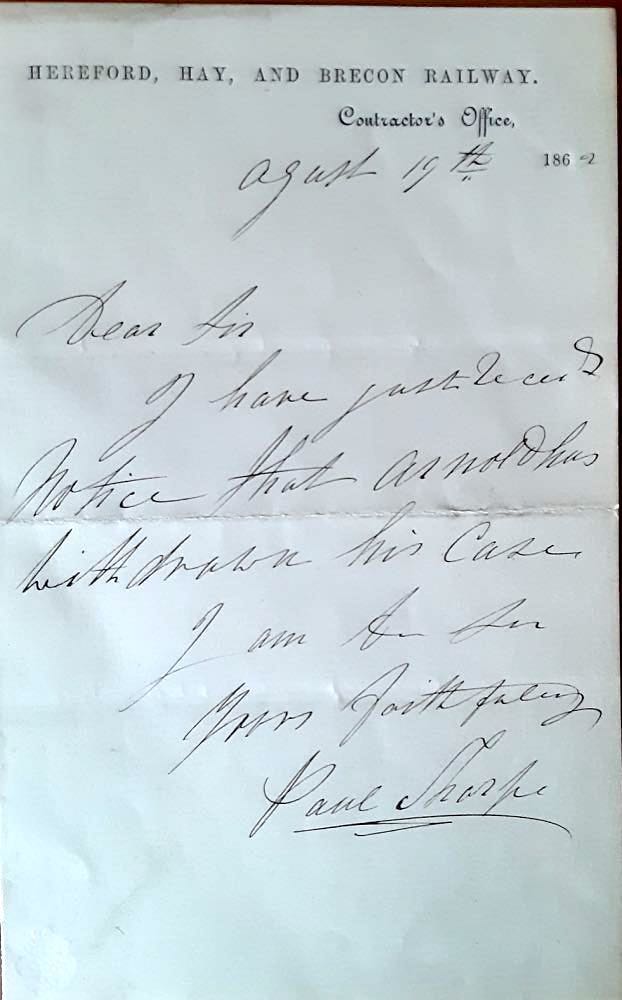 HEREFORD, HAY, AND BRECON RAILWAY.
Contractor's Office,
Agust 19th 1862
Dear Sir
I have just Recd
Notice that Arnold has
withdrawn his Case
I am Dr Sir
Yours faithfuly
Paul Sharpe